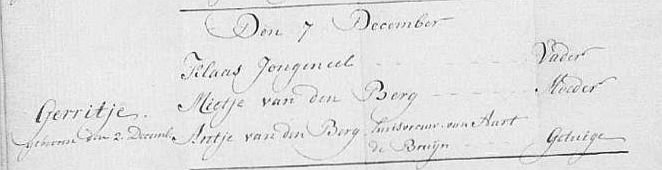 Den 7 December
Klaas Jongeneel Vader
Mietje van den Berg Moeder
Gerritje.
geboren den 2. Decemb. Antje van den Berg huisvrouw van Aart
de Bruijn Getuige